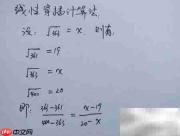 线性穿插计算法
设：√363 = x 则有：
√361 = 19
√363 = x
√400 = 20
即：(363-361)/(400-363) = (x-19)/(20-x)